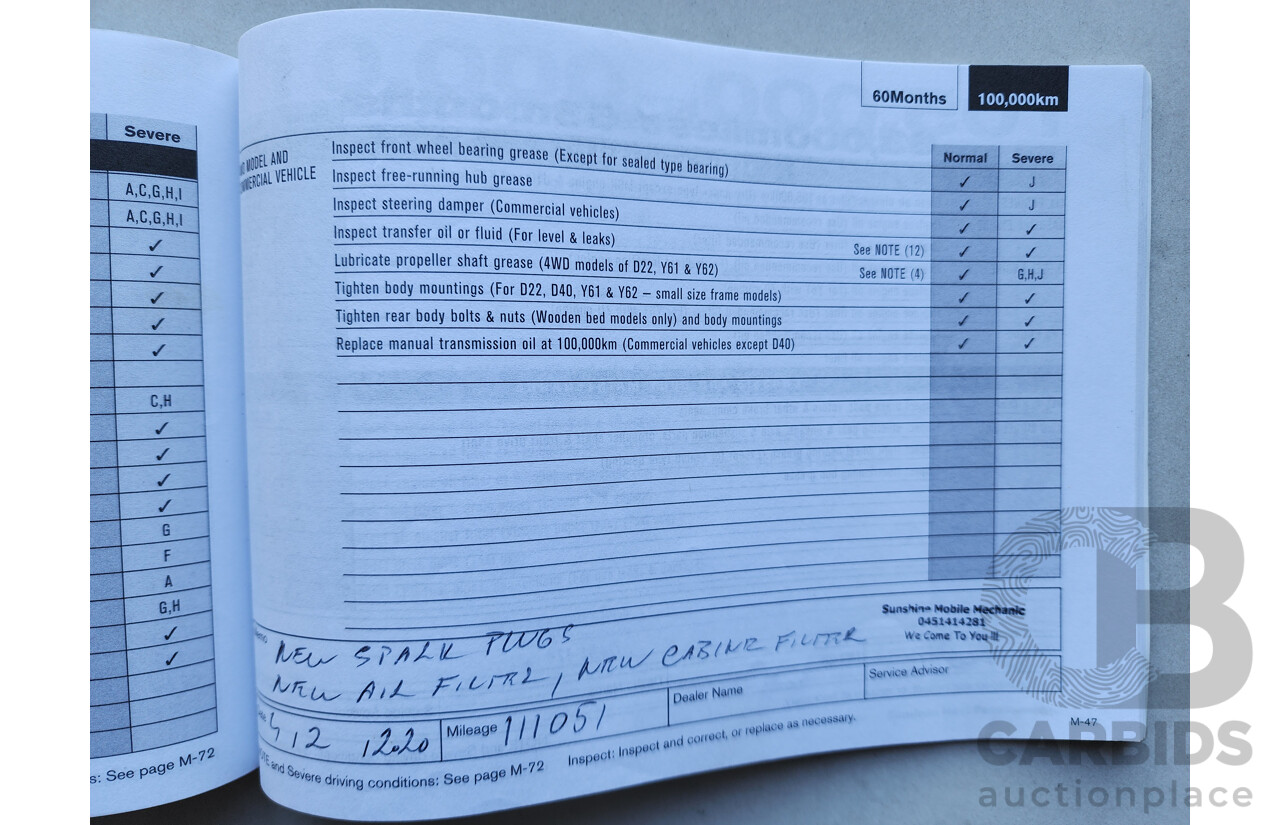 Severe
A,C,G,H,I
A,C,G,H,I
✓
✓
✓
✓
✓
C,H
✓
✓
✓
✓
G
F
A
G,H
✓
✓
s: See page M-72
60Months 100,000km
Normal Severe
MODEL AND
COMMERCIAL VEHICLE
Inspect front wheel bearing grease (Except for sealed type bearing) ✓ J
Inspect free-running hub grease ✓ J
Inspect steering damper (Commercial vehicles) ✓ ✓
Inspect transfer oil or fluid (For level & leaks) See NOTE (12) ✓ ✓
Lubricate propeller shaft grease (4WD models of D22, Y61 & Y62) See NOTE (4) ✓ G,H,J
Tighten body mountings (For D22, D40, Y61 & Y62 – small size frame models) ✓ ✓
Tighten rear body bolts & nuts (Wooden bed models only) and body mountings ✓ ✓
Replace manual transmission oil at 100,000km (Commercial vehicles except D40) ✓ ✓
Sunshine Mobile Mechanic
0451414281
We Come To You!!!
NEW SPARK PLUGS
NEW AIR FILTER, NEW CABINE FILTER
12 Mileage 111051 Dealer Name Service Advisor
and Severe driving conditions: See page M-72 Inspect: Inspect and correct, or replace as necessary.
M-47
CARBIDS
auctionplace